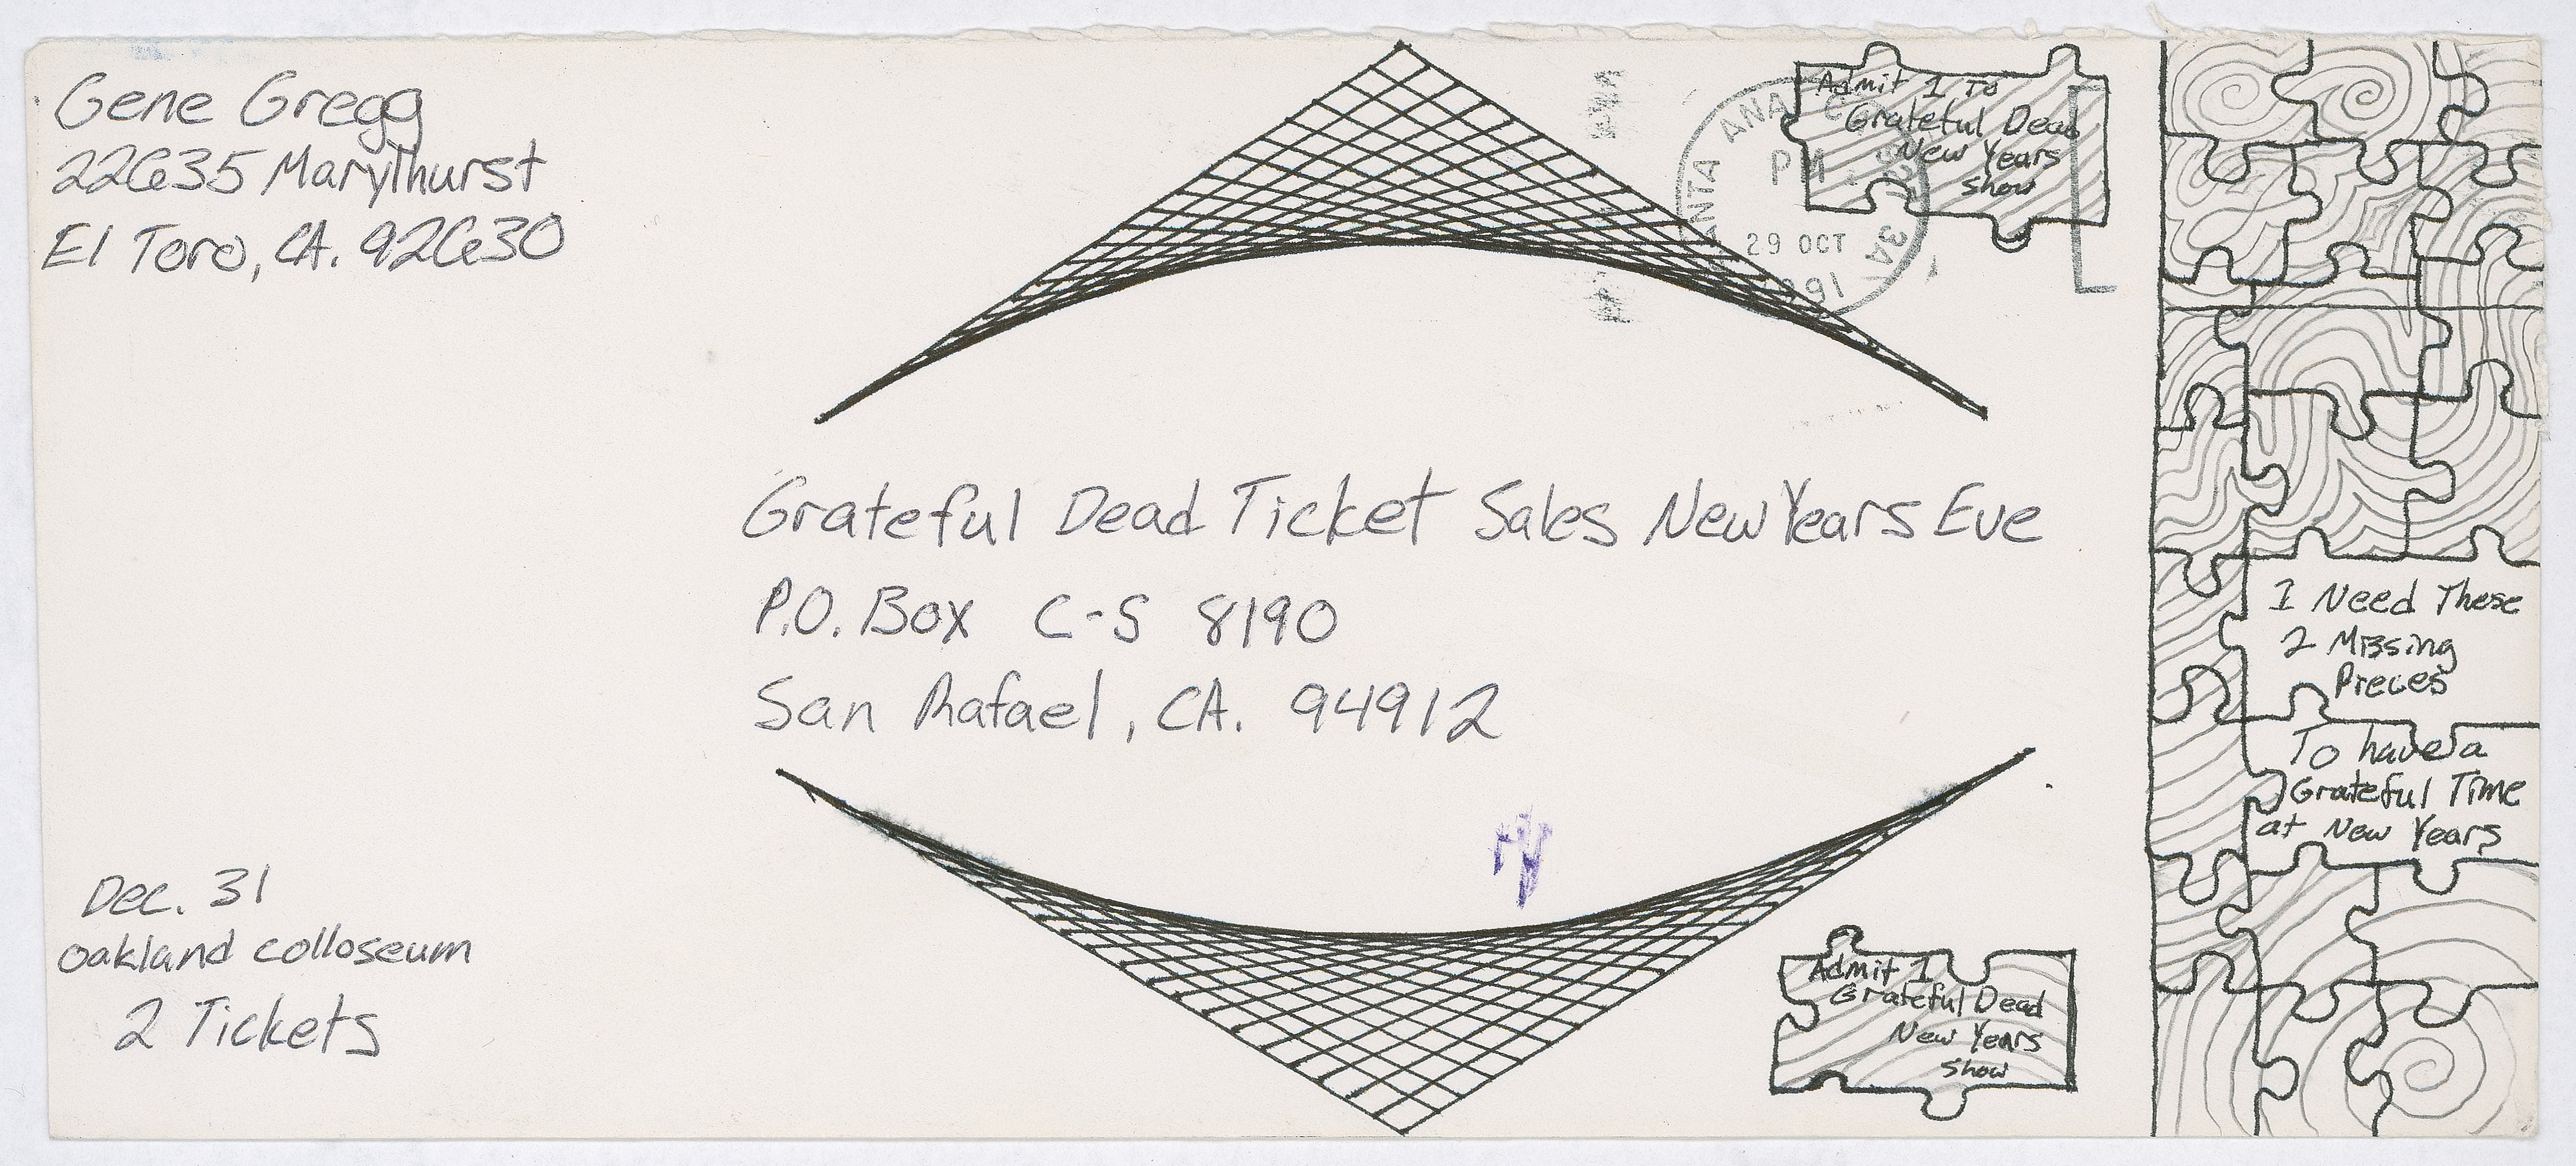 Gene Gregg
22635 Marylhurst
El Toro, CA. 92630
Admit 1 To
Grateful Dead
New Years
Show
SANTA ANA
PM
29 OCT
1991
Grateful Dead Ticket Sales New Years Eve
P.O. Box C-S 8190
San Rafael, CA. 94912
I Need These
2 Missing
Pieces
To have a
Grateful Time
at New Years
Dec. 31
Oakland colloseum
2 Tickets
Admit 1
Grateful Dead
New Years
Show